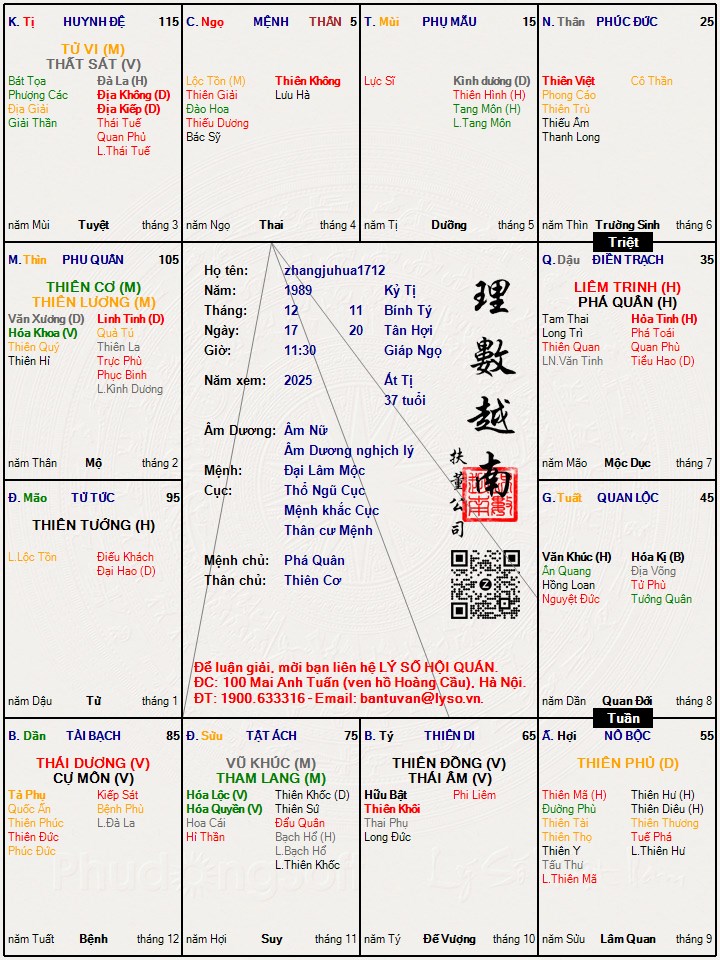 K. Tị HUYNH ĐỆ 115
TỬ VI (M)
THẤT SÁT (V)
Bát Tọa Đà La (H)
Phượng Các Địa Không (D)
Địa Giải Địa Kiếp (D)
Giải Thần Thái Tuế
Quan Phủ
L.Thái Tuế
năm Mùi Tuyệt tháng 3
C. Ngọ MỆNH THÂN 5
Lộc Tồn (M) Thiên Không
Thiên Giải Lưu Hà
Đào Hoa
Thiếu Dương
Bác Sỹ
năm Ngọ Thai tháng 4
T. Mùi PHỤ MẪU 15
Lực Sĩ Kình dương (D)
Thiên Hình (H)
Tang Môn (H)
L.Tang Môn
năm Tị Dưỡng tháng 5
N. Thân PHÚC ĐỨC 25
Thiên Việt Cô Thần
Phong Cáo
Thiên Trù
Thiếu Âm
Thanh Long
năm Thìn Trường Sinh tháng 6
Triệt
M. Thìn PHU QUÂN 105
THIÊN CƠ (M)
THIÊN LƯƠNG (M)
Văn Xương (D) Linh Tinh (D)
Hóa Khoa (V) Quả Tú
Thiên Quý Thiên La
Thiên Hỉ Trực Phù
Phục Binh
L.Kình Dương
năm Thân Mộ tháng 2
Họ tên: zhangjuhua1712
Năm: 1989 Kỷ Tị
Tháng: 12 11 Bính Tý
Ngày: 17 20 Tân Hợi
Giờ: 11:30 Giáp Ngọ
Năm xem: 2025 Ất Tị
37 tuổi
Âm Dương: Âm Nữ
Âm Dương nghịch lý
Mệnh: Đại Lâm Mộc
Cục: Thổ Ngũ Cục
Mệnh khắc Cục
Thân cư Mệnh
Mệnh chủ: Phá Quân
Thân chủ: Thiên Cơ
理數越南
扶董公司
Để luận giải, mời bạn liên hệ LÝ SỐ HỘI QUÁN.
ĐC: 100 Mai Anh Tuấn (ven hồ Hoàng Cầu), Hà Nội.
ĐT: 1900.633316 - Email: bantuvan@lyso.vn.
Q. Dậu ĐIỀN TRẠCH 35
LIÊM TRINH (H)
PHÁ QUÂN (H)
Tam Thai Hỏa Tinh (H)
Long Trì Phá Toái
Thiên Quan Quan Phù
LN.Văn Tinh Tiểu Hao (D)
năm Mão Mộc Dục tháng 7
Đ. Mão TỬ TỨC 95
THIÊN TƯỚNG (H)
L.Lộc Tồn Điếu Khách
Đại Hao (D)
năm Dậu Tử tháng 1
G. Tuất QUAN LỘC 45
Văn Khúc (H) Hóa Kị (B)
Ân Quang Địa Võng
Hồng Loan Tử Phù
Nguyệt Đức Tướng Quân
năm Dần Quan Đới tháng 8
Tuần
B. Dần TÀI BẠCH 85
THÁI DƯƠNG (V)
CỰ MÔN (V)
Tả Phụ Kiếp Sát
Quốc Ấn Bệnh Phù
Thiên Phúc L.Đà La
Thiên Đức
Phúc Đức
năm Tuất Bệnh tháng 12
Đ. Sửu TẬT ÁCH 75
VŨ KHÚC (M)
THAM LANG (M)
Hóa Lộc (V) Thiên Khốc (D)
Hóa Quyền (V) Thiên Sứ
Hoa Cái Đẩu Quân
Hỉ Thần Bạch Hổ (H)
L.Bạch Hổ
L.Thiên Khốc
năm Hợi Suy tháng 11
B. Tý THIÊN DI 65
THIÊN ĐỒNG (V)
THÁI ÂM (V)
Hữu Bật Phi Liêm
Thiên Khôi
Thai Phụ
Long Đức
năm Tý Đế Vượng tháng 10
Ấ. Hợi NÔ BỘC 55
THIÊN PHỦ (D)
Thiên Mã (H) Thiên Hư (H)
Đường Phù Thiên Diêu (H)
Thiên Tài Thiên Thương
Thiên Thọ Tuế Phá
Thiên Y L.Thiên Hư
Tấu Thư
L.Thiên Mã
năm Sửu Lâm Quan tháng 9